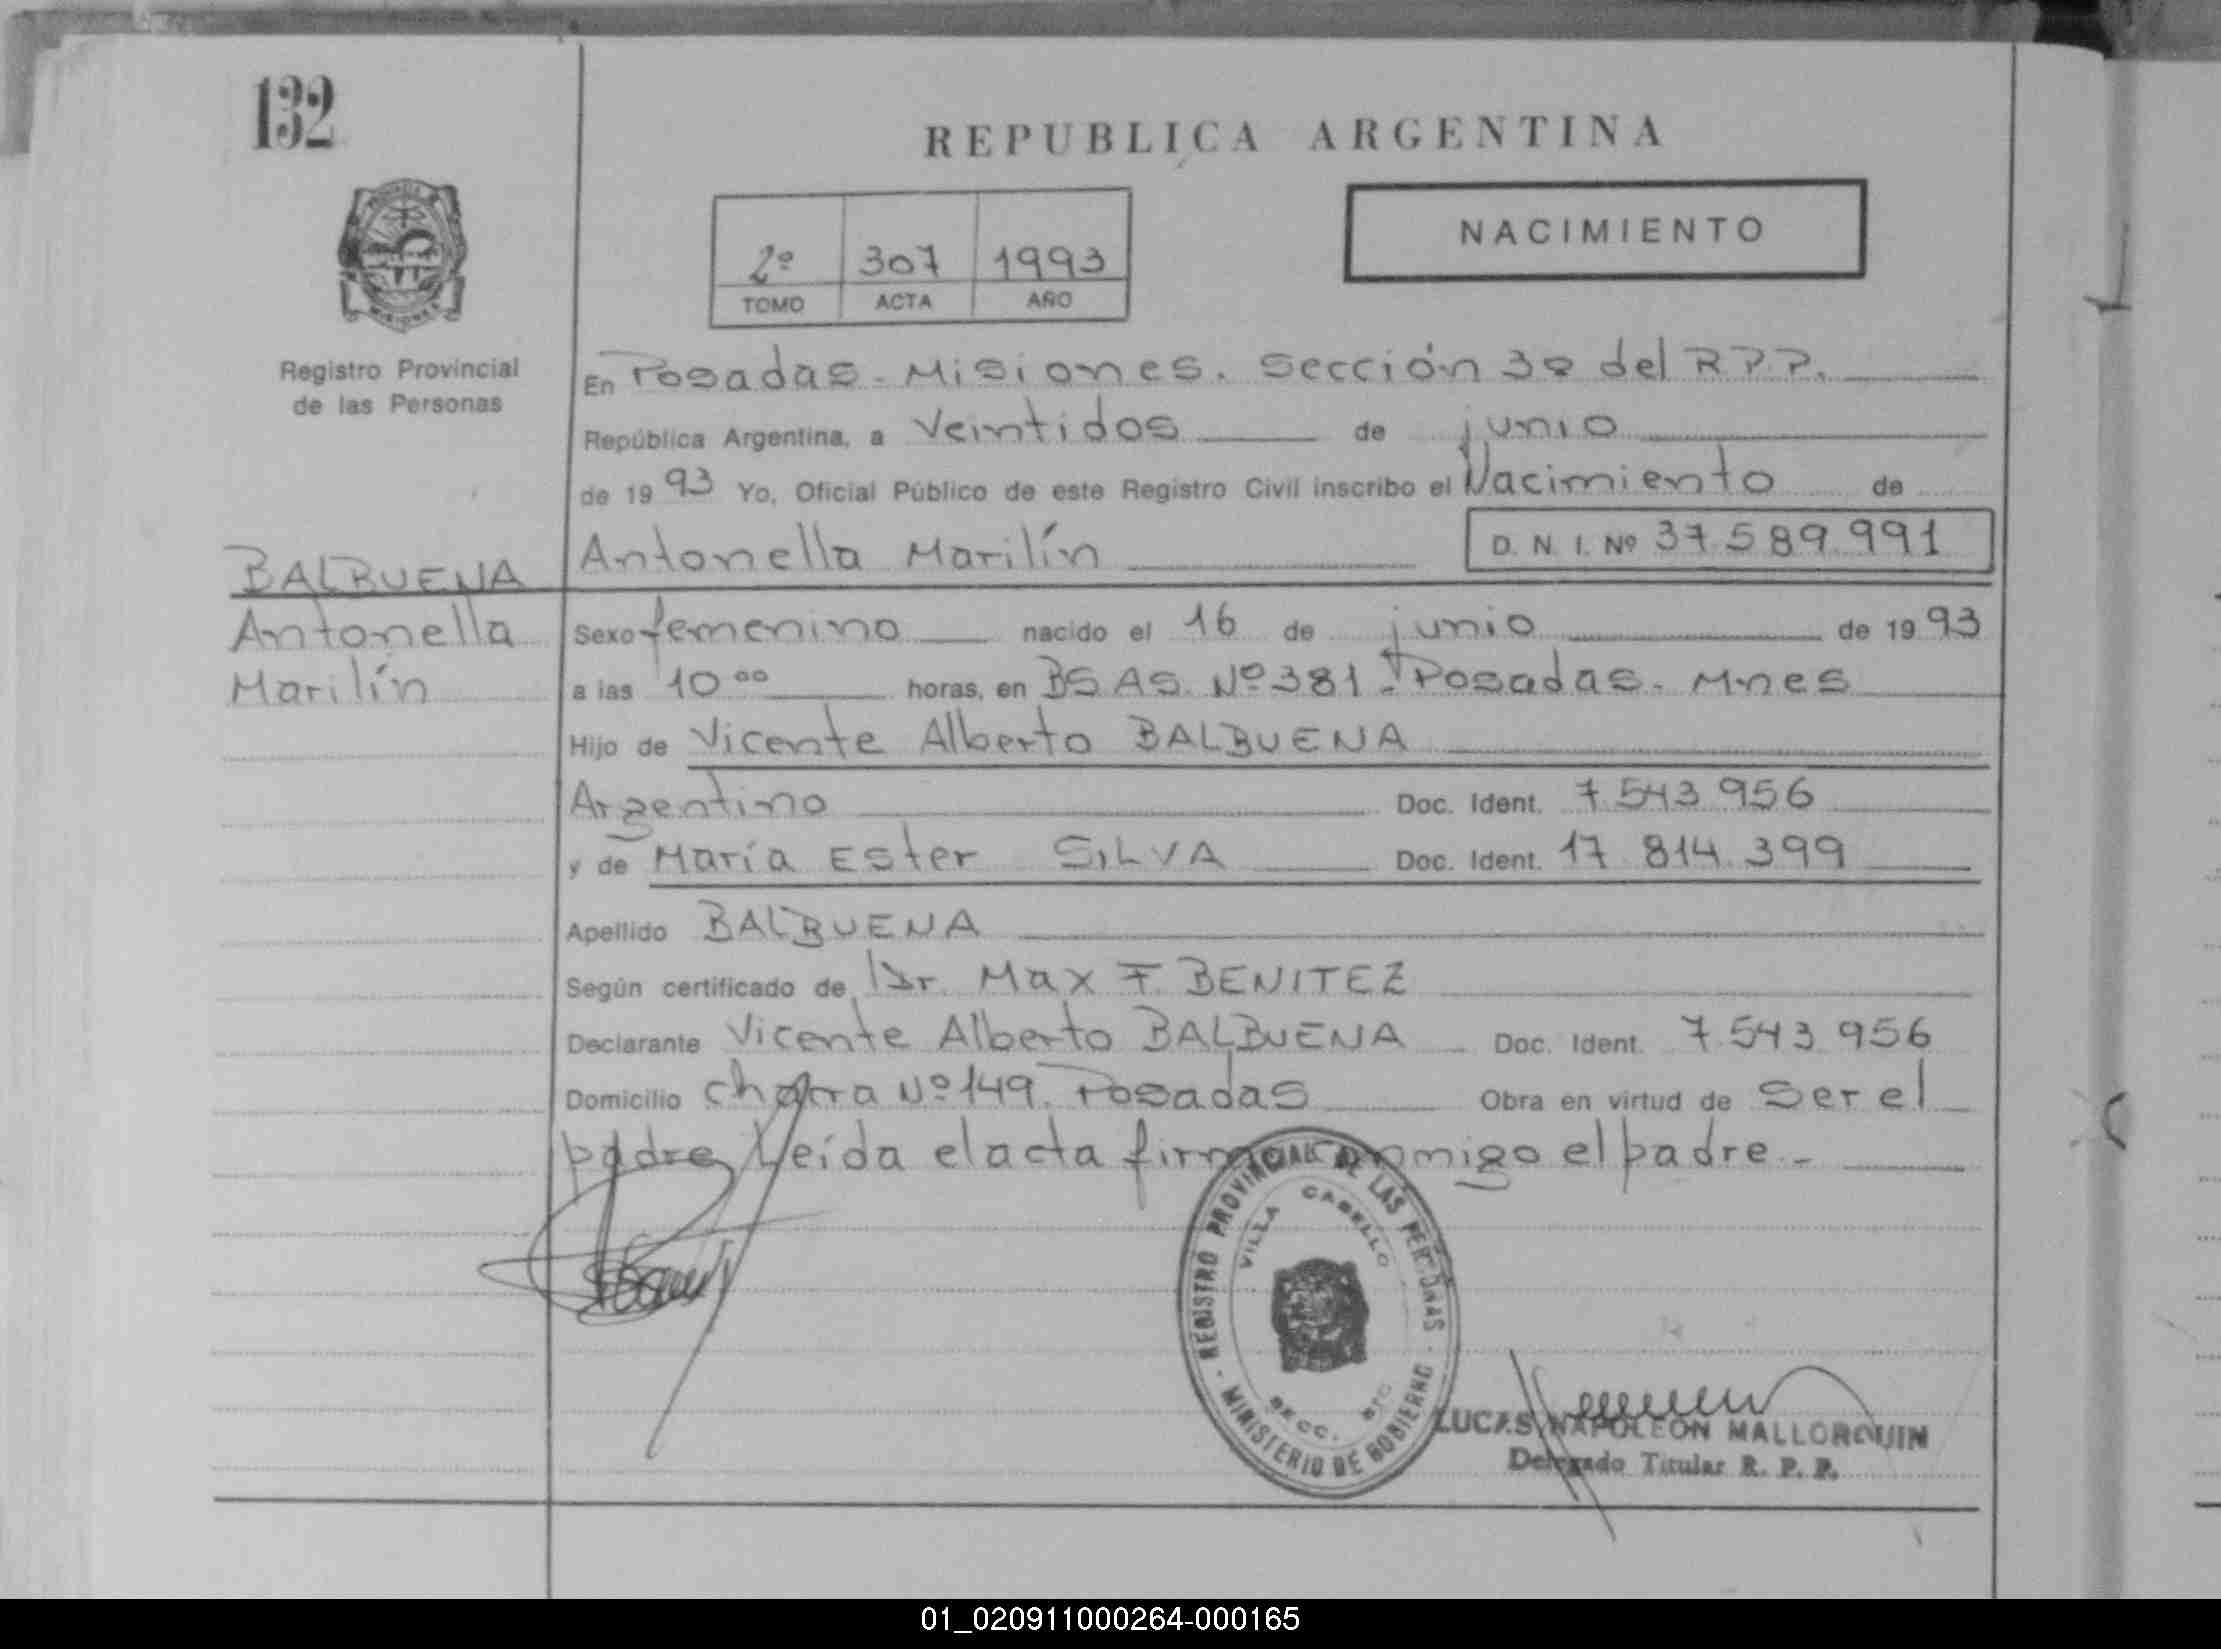 132
REPUBLICA ARGENTINA
NACIMIENTO
2º 307 1993
TOMO ACTA AÑO
Registro Provincial
de las Personas
En Posadas - Misiones. Sección 3º del R.P.P.
República Argentina, a Veintidos de junio
de 19 93 Yo, Oficial Público de este Registro Civil inscribo el Nacimiento de
Antonella Marilín D. N. I. Nº 37.589.991
BALBUENA
Antonella
Marilín
Sexo femenino nacido el 16 de junio de 19 93
a las 10 ºº horas, en BS AS. Nº 381 - Posadas - Mnes
Hijo de Vicente Alberto BALBUENA
Argentino Doc. Ident. 7.543.956
y de María Ester SILVA Doc. Ident. 17.814.399
Apellido BALBUENA
Según certificado de Dr. Max F. BENITEZ
Declarante Vicente Alberto BALBUENA Doc. Ident. 7.543.956
Domicilio chacra Nº 149. Posadas Obra en virtud de Ser el
padre. Leída el acta firma conmigo el padre -
REGISTRO PROVINCIAL DE LAS PERSONAS
VILLA CABELLO
SECC. 3RO
- MINISTERIO DE GOBIERNO -
LUCAS NAPOLEON MALLORQUIN
Delegado Titular R. P. P.
01_020911000264-000165